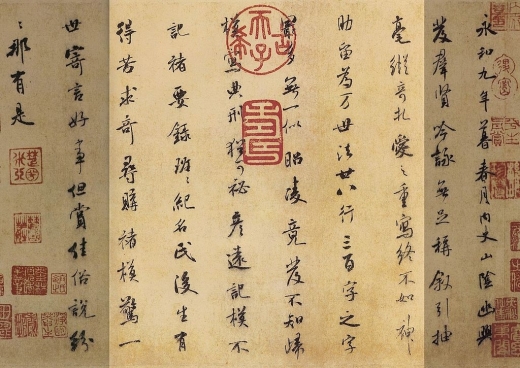 永和九年暮春月内史山陰幽興
發群賢吟詠無足稱叙引抽
毫縱奇札愛之重寫終不如神
助留為万世法廿八行三百字之字
最多無一似昭陵竟發不知歸
模寫典刑猶可秘彦遠記模不
記褚要錄班〻紀名氏後生有
得苦求奇尋購褚模驚一
世寄言好事但賞佳俗說紛
〻那有是
古希天子